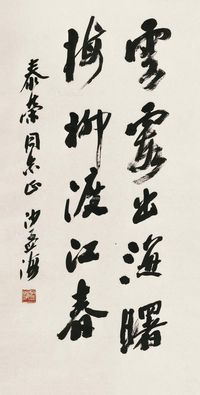 雲霞出海曙
梅柳渡江春
泰榮同志正 沙孟海